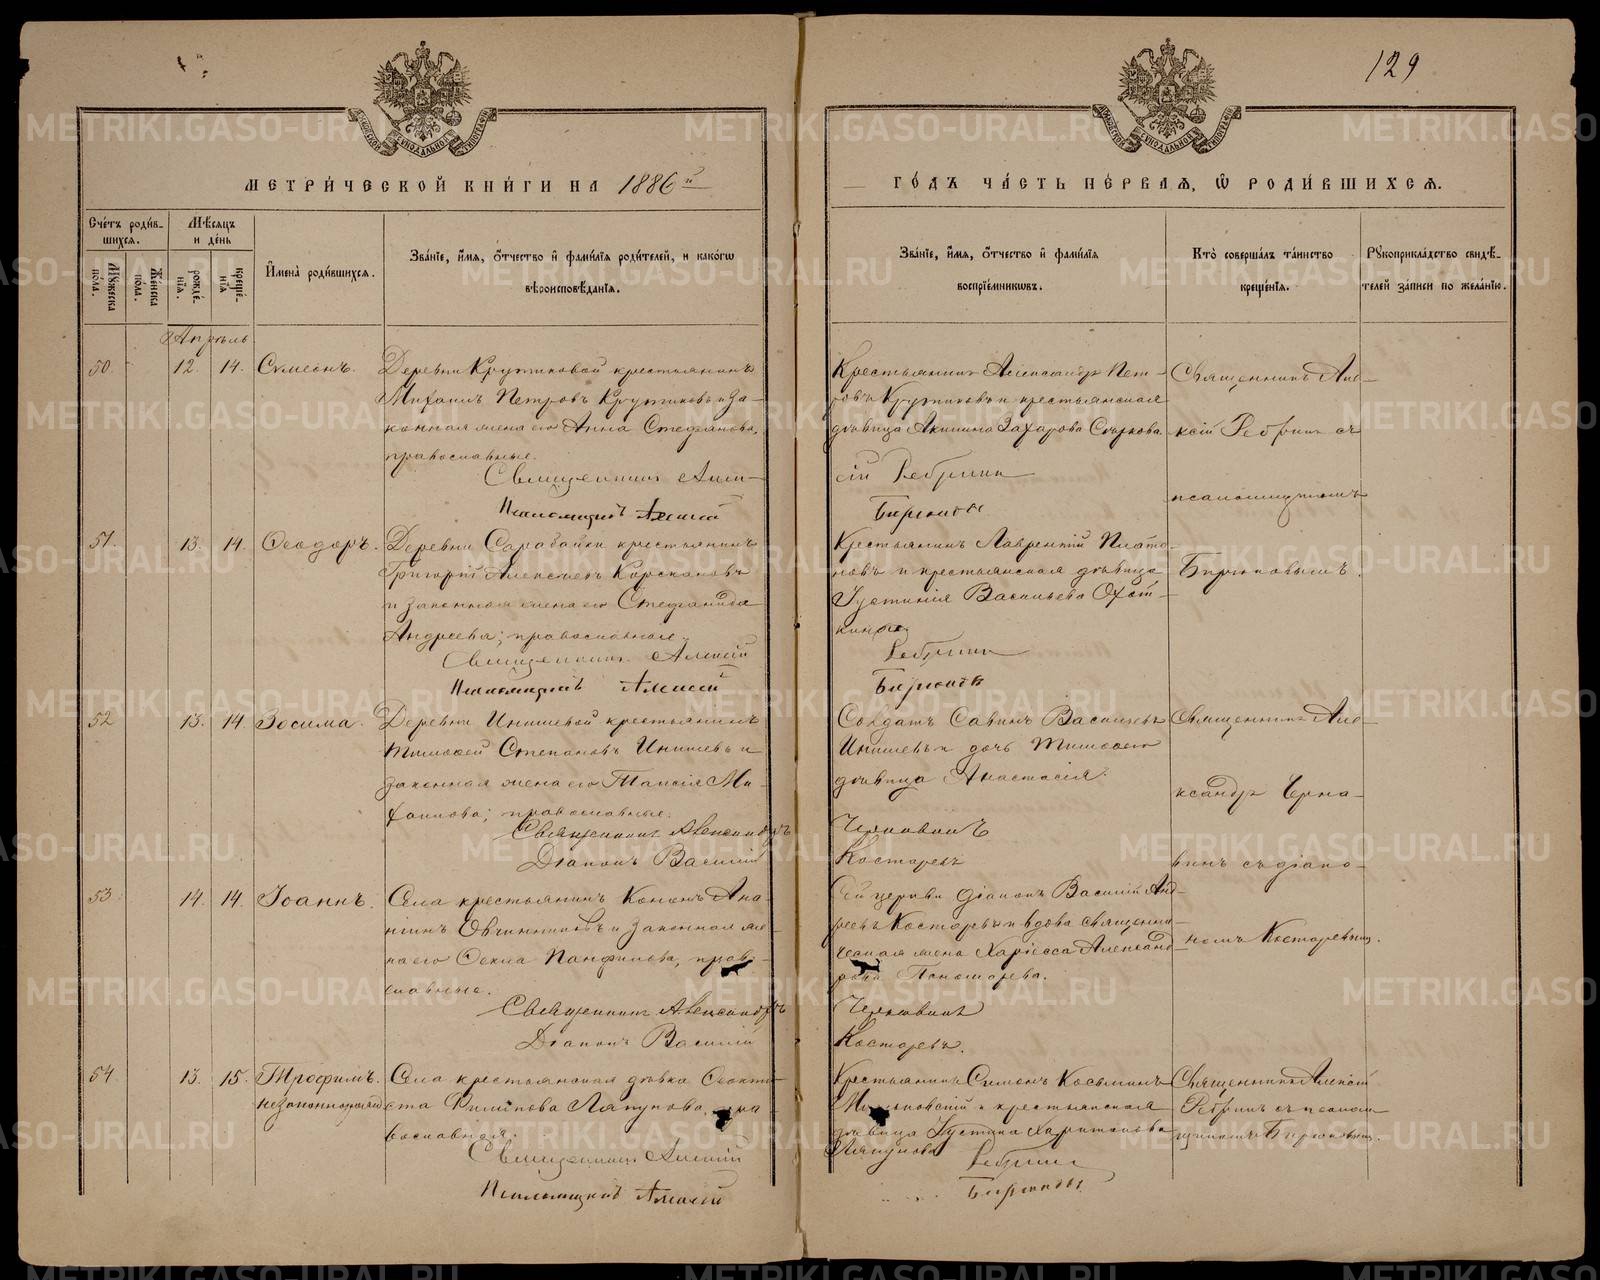 129
МЕТРИ́ЧЕСКОЙ КНИ́ГИ НА 1886й
ГО́ДЪ ЧА́СТЬ ПЕ́РВАЯ, Ѡ РОДИ́ВШИХСЯ.
Сче́тъ роди́в-
шихся.
Мꙋжеска по́ла.
Же́нска по́ла.
Мѣ́сяцъ
и де́нь
рожде́-
нїя.
креще́-
нїя
И҆мена̀ роди́вшихся.
Зва́нїе, и҆́мя, ѻ҆́тчество и҆ фами́лїя роди́телей, и како́гѡ
вѣроисповѣ́данїя.
Зва́нїе, и҆́мя, ѻ҆́тчество и҆ фами́лїя
воспрїе́мниковъ.
Кто̀ соверша́лъ та́инство
креще́нїя.
Рꙋкоприкла́дство свидѣ́-
телей за́писи по жела́нїю.
Апрѣль
50. 12. 14. Сѵмеонъ.
Деревни Крутиковой крестьянинъ
Михаилъ Петровъ Крутиковъ и за-
конная жена его Анна Стефанова,
православные.
Священникъ Алек-
Псаломщикъ Алексій
Крестьянинъ Александръ Пет-
ровъ Крутиковъ и крестьянская
дѣвица Акилина Захарова Сѣркова.
сій Ребринъ
Бирюковъ
Священникъ Але-
ксій Ребринъ съ
псаломщикомъ
Бирюковымъ.
51. 13. 14. Ѳеодоръ.
Деревни Сарабайки крестьянинъ
Григорій Алексѣевъ Корскановъ
и законная жена его Стефанида
Андреева; православные.
Священникъ Алексій
Псаломщикъ Алексій
Крестьянинъ Лаврентій Плато-
новъ и крестьянская дѣвица
Іустинія Васильева Охот-
никова
Ребринъ
Бирюковъ
52 13. 14 Зосима.
Деревни Инишевой крестьянинъ
Тимоѳей Степановъ Инишевъ и
законная жена его Таисія Ми-
хаилова; православные.
Священникъ Александръ
Діаконъ Василій
Солдатъ Савинъ Васильевъ
Инишевъ и дочь Тимоѳея
дѣвица Анастасія.
Костаревъ
Священникъ Але-
ксандръ Черна-
винъ съ діако-
номъ Костаревым.
53. 14. 14. Іоаннъ.
Села крестьянинъ Кононъ Ана-
ніинъ Овчинниковъ и законная же-
на его Ѳекла Панфилова, право-
славные.
Священникъ Александръ
Діаконъ Василій
Сей церкви діаконъ Василій Анд-
реевъ Костаревъ и вдова священни-
ческая жена Харіесса Александ-
рова Пономарева.
Костаревъ.
54. 13. 15. Трофимъ.
незаконнорожд
Села крестьянская дѣвка Ѳеокти-
ста Филипова Ляпунова, пра-
вославная.
Священникъ Алексій
Псаломщикъ Алексій
Крестьянинъ Симонъ Козьминъ
и крестьянская
дѣвица Іустина Харитонова
Ляпунова
Ребринъ
Бирюковъ
Священникъ Алексій
Ребринъ съ псалом-
щикомъ Бирюковым.